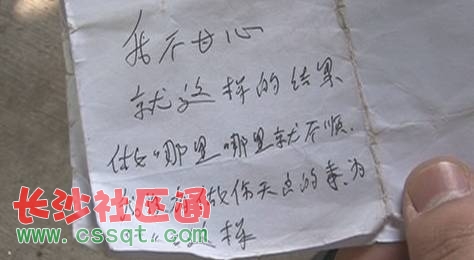 我不甘心
就这样的结果
做哪里哪里就不顺.
我没有做伤天良的事.为
样
长沙社区通
www.cssqt.com